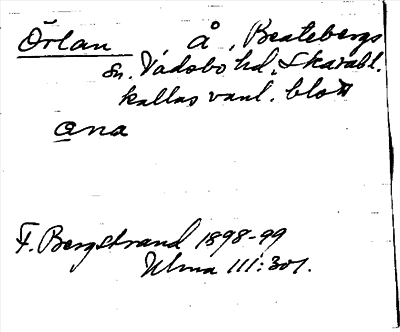 Örlan å, Beatebergs
sn. Vadsbo hd, Skarabl.
kallas vanl. blott
ana
F. Bergstrand 1898-99
Ulma 111:301.